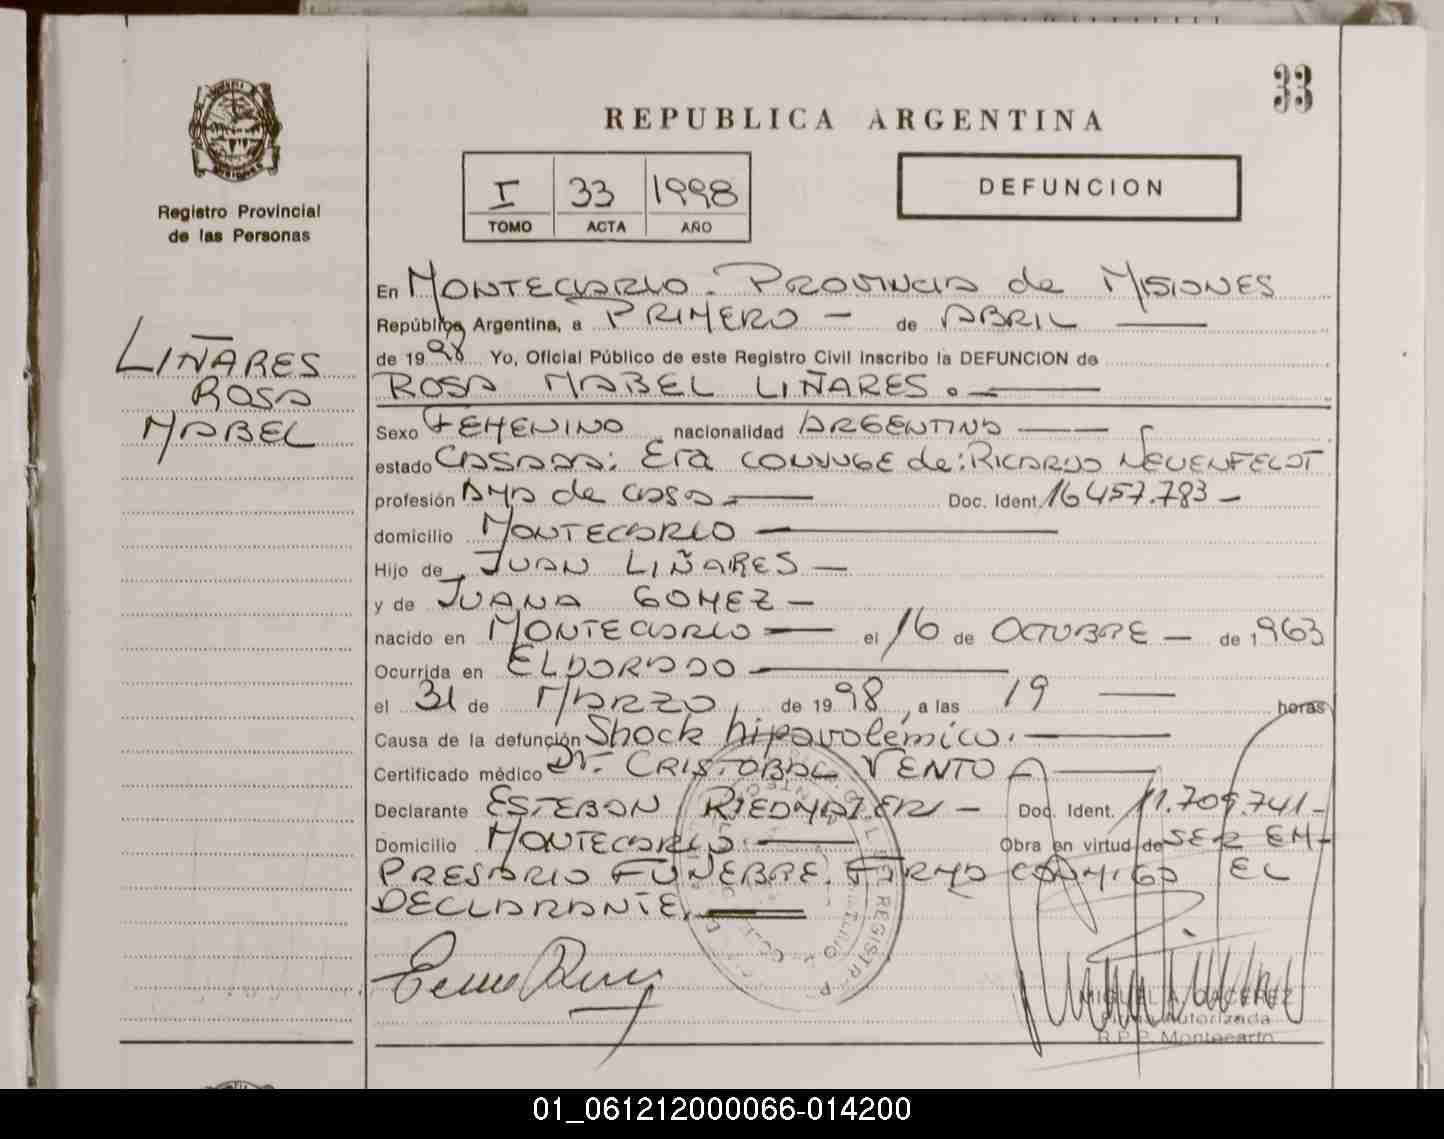 33
REPUBLICA ARGENTINA
I 33 1998
TOMO ACTA AÑO
DEFUNCION
Registro Provincial
de las Personas
LIÑARES
ROSA
MABEL
En MONTECARLO - PROVINCIA de MISIONES
República Argentina, a PRIMERO - de ABRIL
de 1998 Yo, Oficial Público de este Registro Civil inscribo la DEFUNCION de
ROSA MABEL LIÑARES.
Sexo FEMENINO nacionalidad ARGENTINA
estado CASADA: Era CONYUGE de: RICARDO NEUENFELDT
profesión AMA de CASA Doc. Ident. 16457.783
domicilio MONTECARLO
Hijo de JUAN LIÑARES
y de JUANA GOMEZ
nacido en MONTECARLO el 16 de OCTUBRE de 1963
Ocurrida en ELDORADO
el 31 de MARZO de 1998, a las 19 horas
Causa de la defunción Shock hipovolémico.
Certificado médico Dr. CRISTOBAL VENTO
Declarante ESTEBAN RIEDMAIER Doc. Ident. 11.709.741
Domicilio MONTECARLO. Obra en virtud de SER EM-
PRESARIO FUNEBRE. FIRMA CONMIGO EL
DECLARANTE.
MIGUEL A. CACEREZ
Firma Autorizada
R.P.P. Montecarlo
01_061212000066-014200